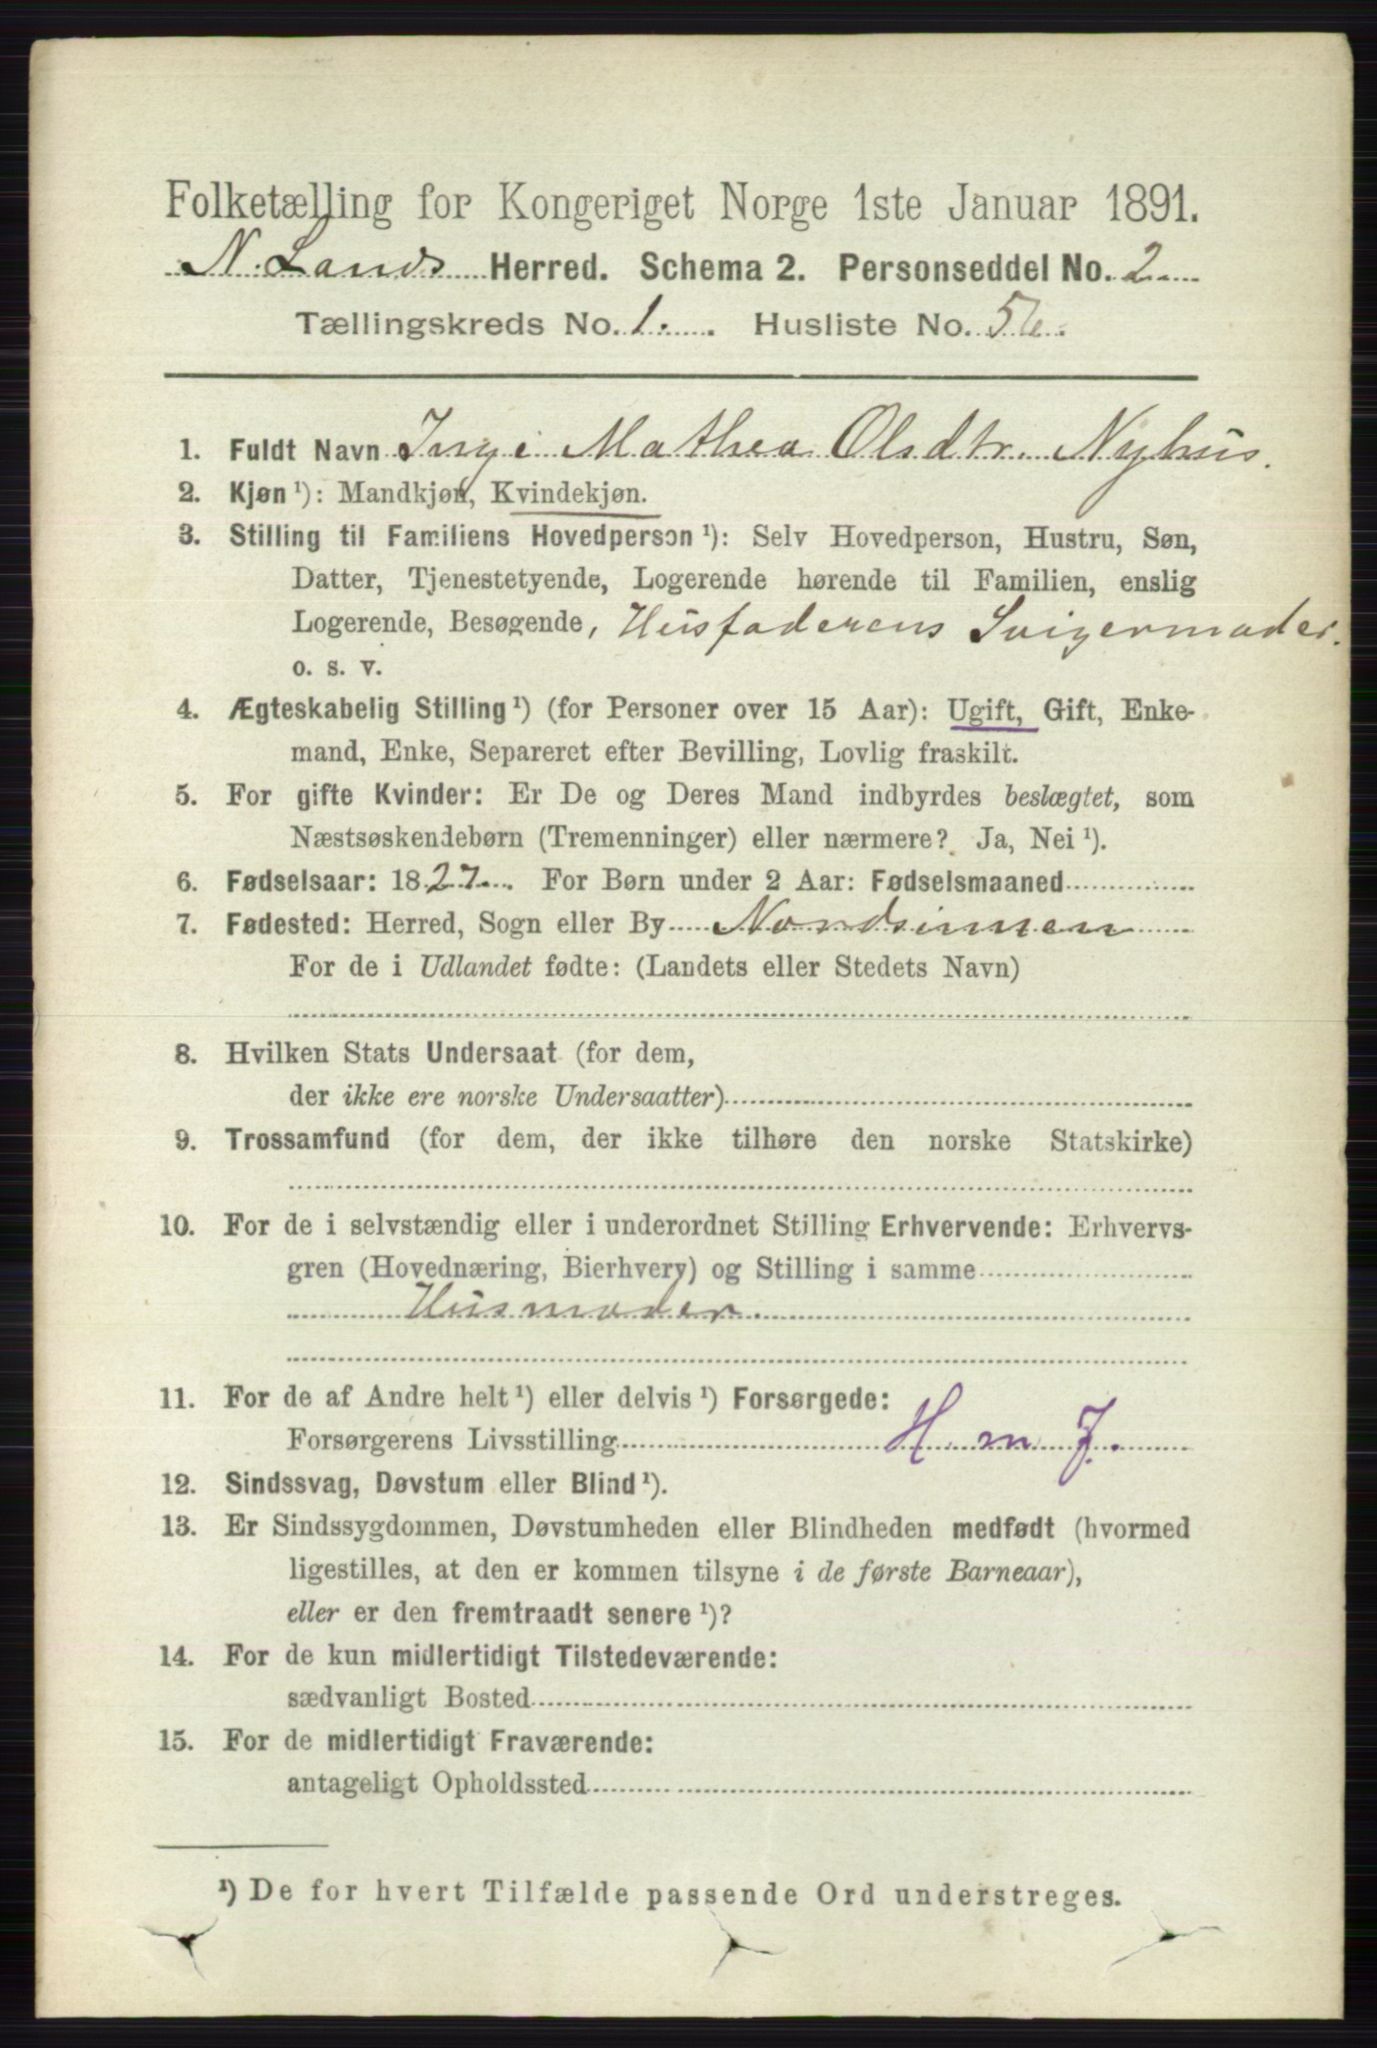 Folketælling for Kongeriget Norge 1ste Januar 1891.
N. Lands Herred. Schema 2. Personseddel No. 2
Tællingskreds No. 1. Husliste No. 56.
1. Fuldt Navn Inge Mathea Olsdtr. Nyhus.
2. Kjøn ¹): Mandkjøn, Kvindekjøn.
3. Stilling til Familiens Hovedperson ¹): Selv Hovedperson, Hustru, Søn,
Datter, Tjenestetyende, Logerende hørende til Familien, enslig
Logerende, Besøgende, Husfaderens Svigermoder.
o. s. v.
4. Ægteskabelig Stilling ¹) (for Personer over 15 Aar): Ugift, Gift, Enke-
mand, Enke, Separeret efter Bevilling, Lovlig fraskilt.
5. For gifte Kvinder: Er De og Deres Mand indbyrdes beslægtet, som
Næstsøskendebørn (Tremenninger) eller nærmere? Ja, Nei ¹).
6. Fødselsaar: 1827. For Børn under 2 Aar: Fødselsmaaned
7. Fødested: Herred, Sogn eller By Nordsinnen
For de i Udlandet fødte: (Landets eller Stedets Navn)
8. Hvilken Stats Undersaat (for dem,
der ikke ere norske Undersaatter)
9. Trossamfund (for dem, der ikke tilhøre den norske Statskirke)
10. For de i selvstændig eller i underordnet Stilling Erhvervende: Erhvervs-
gren (Hovednæring, Bierhverv) og Stilling i samme
Husmoder.
11. For de af Andre helt ¹) eller delvis ¹) Forsørgede:
Forsørgerens Livsstilling H. m J.
12. Sindssvag, Døvstum eller Blind ¹).
13. Er Sindssygdommen, Døvstumheden eller Blindheden medfødt (hvormed
ligestilles, at den er kommen tilsyne i de første Barneaar),
eller er den fremtraadt senere ¹)?
14. For de kun midlertidigt Tilstedeværende:
sædvanligt Bosted
15. For de midlertidigt Fraværende:
antageligt Opholdssted
¹) De for hvert Tilfælde passende Ord understreges.